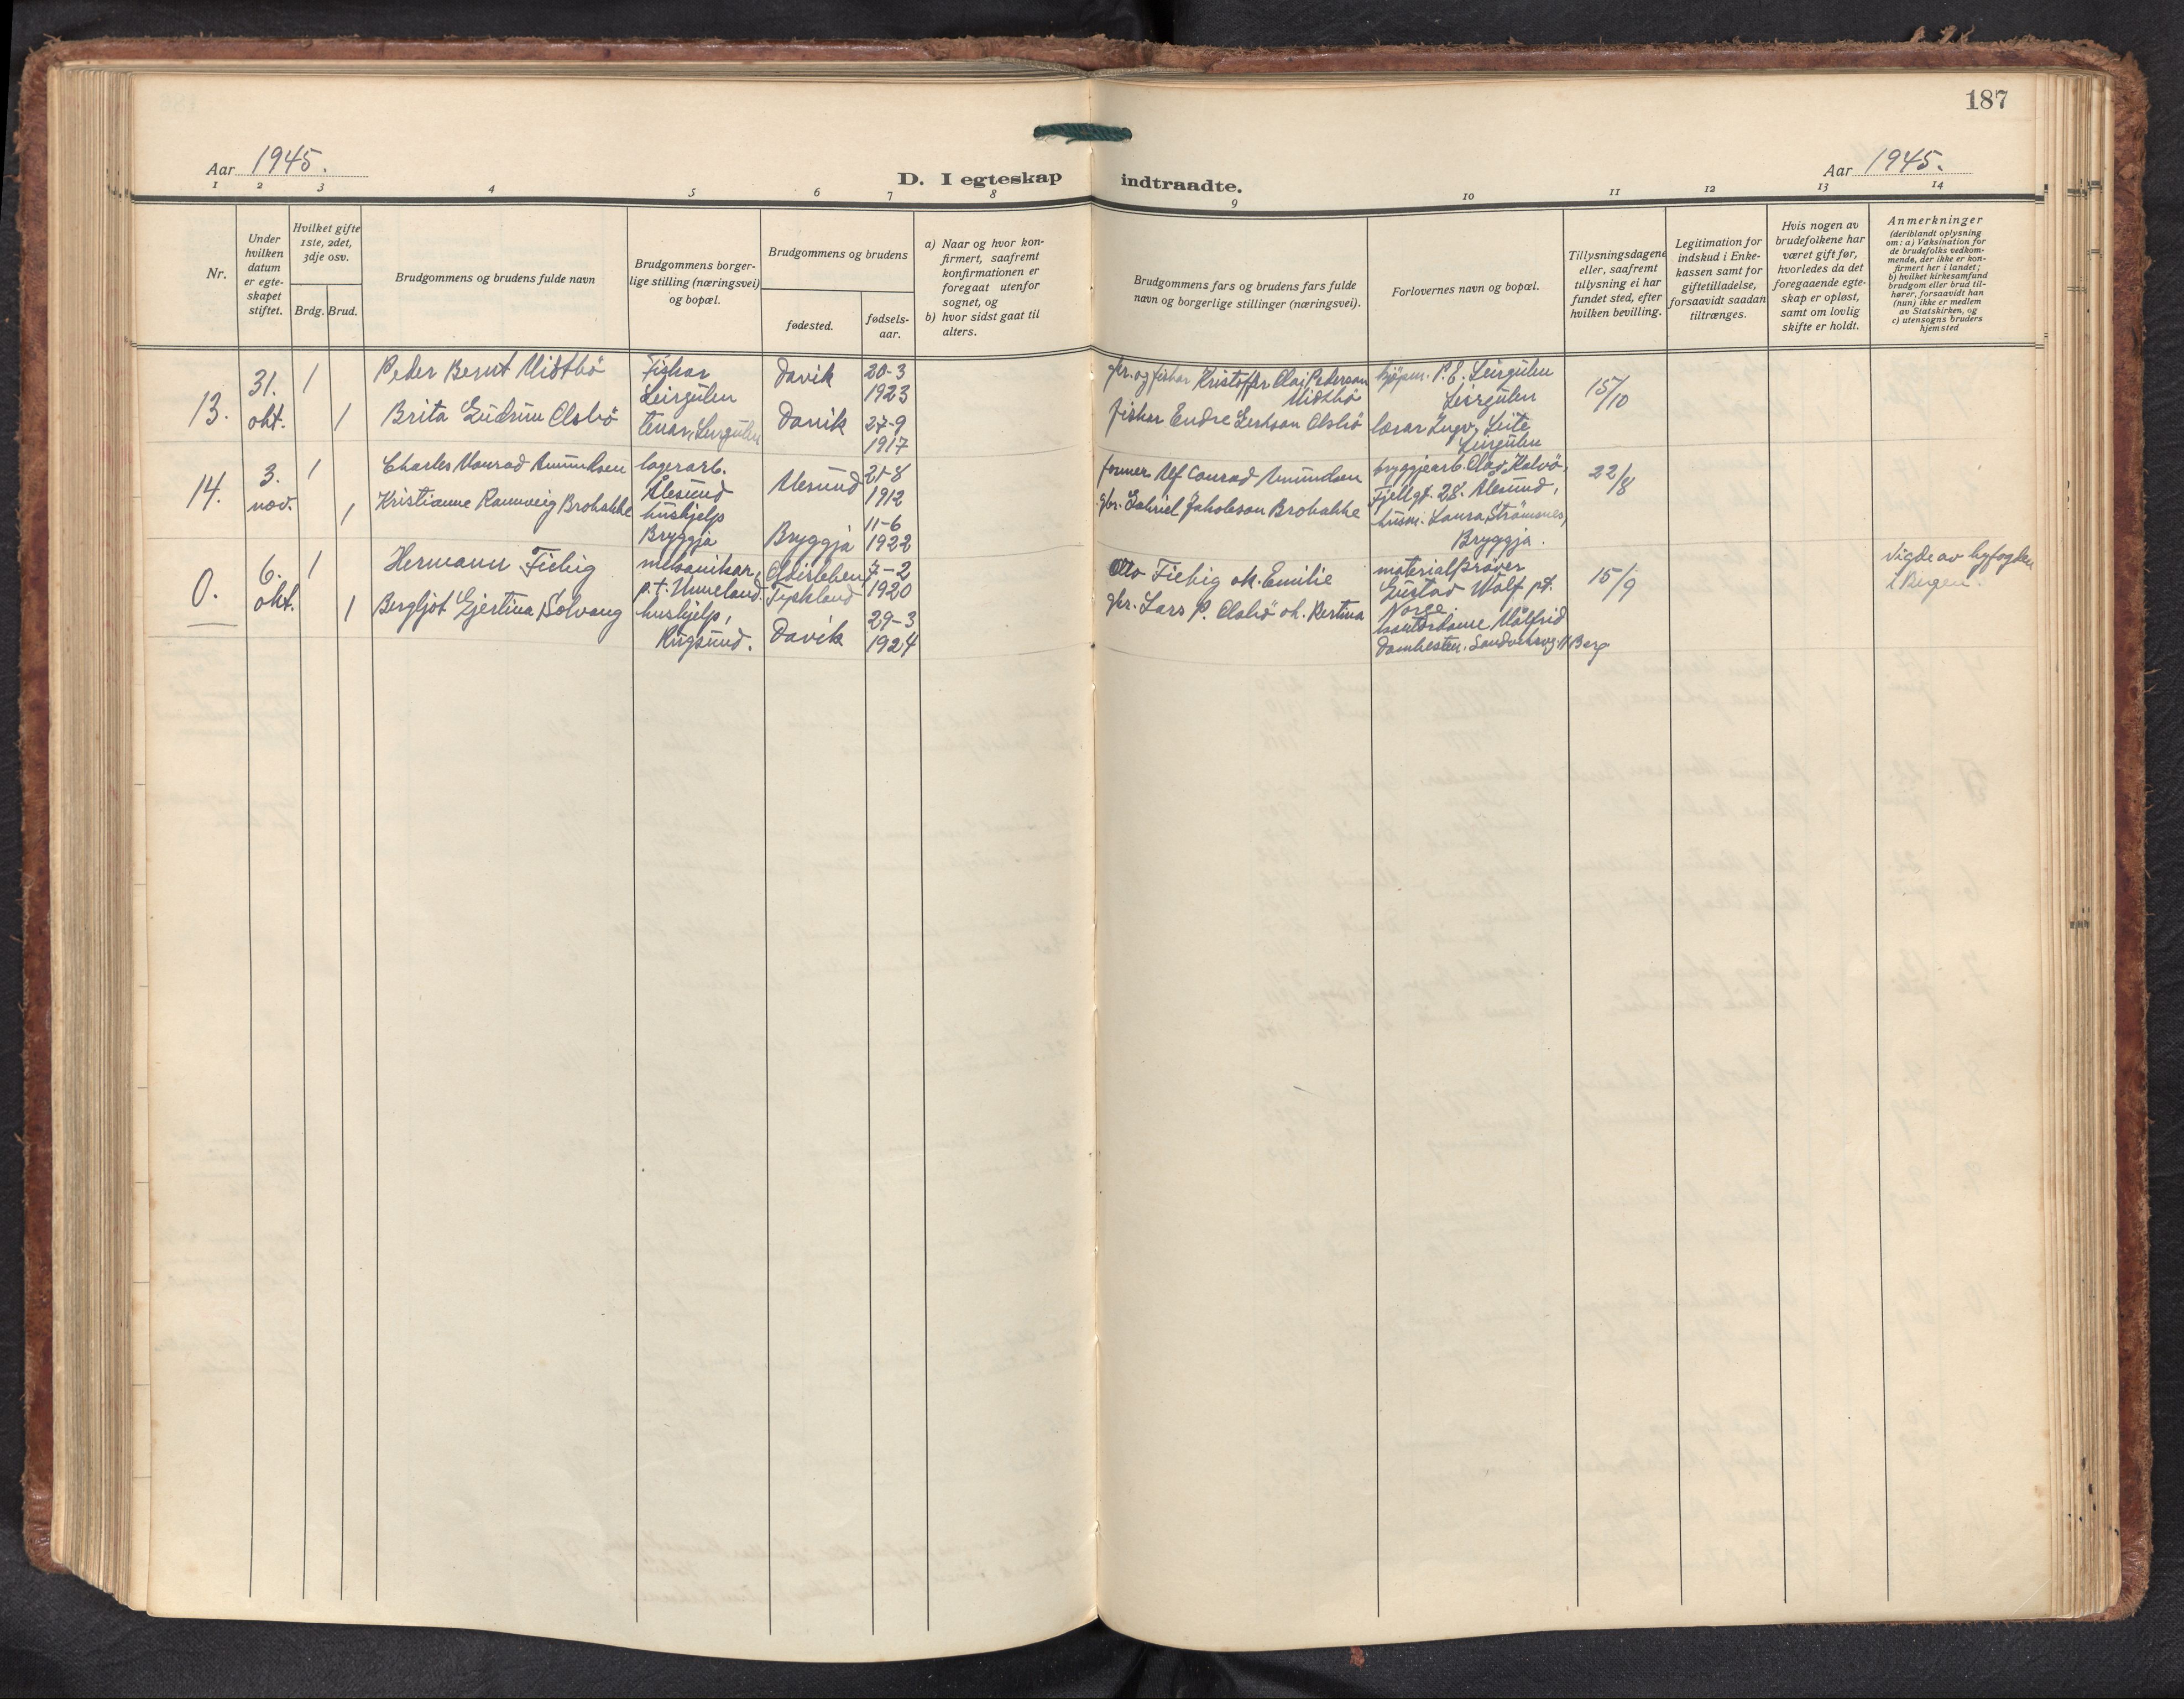 187
Aar 1945.
D. I egteskap indtraadte.
Aar 1945.
1 2 3 4 5 6 7 8 9 10 11 12 13 14
Nr.
Under hvilken datum er egte-skapet stiftet.
Hvilket gifte 1ste, 2det, 3dje osv.
Brdg. Brud.
Brudgommens og brudens fulde navn
Brudgommens borger-lige stilling (næringsvei) og bopæl.
Brudgommens og brudens
fødested.
fødsels-aar.
a) Naar og hvor kon-firmert, saafremt konfirmationen er foregaat utenfor sognet, og
b) hvor sidst gaat til alters.
Brudgommens fars og brudens fars fulde navn og borgerlige stillinger (næringsvei).
Forlovernes navn og bopæl.
Tillysningsdagene eller, saafremt tillysning ei har fundet sted, efter hvilken bevilling.
Legitimation for indskud i Enke-kassen samt for giftetilladelse, forsaavidt saadan tiltrænges.
Hvis nogen av brudefolkene har været gift før, hvorledes da det foregaaende egte-skap er opløst, samt om lovlig skifte er holdt.
Anmerkninger
(deriblandt oplysning om: a) Vaksination for de brudefolks vedkom-mende, der ikke er kon-firmert her i landet; b) hvilket kirkesamfund brudgom eller brud til-hører, forsaavidt han (hun) ikke er medlem av Statskirken, og c) utensogns bruders hjemsted
13. 31. okt. 1
Peder Bernt Midtbö
Fiskar Leirgulen
Davik
20-3 1923
gbr. og fiskar Kristoffer Olai Pederson Midtbö
kjöpm. P. E. Leirgulen Leirgulen
15/10
1
Brita Gudrun Olsbö
tenar, Leirgulen
Davik
27-9 1917
fiskar Endre Olsbö
lærar Ingv. Leite Leirgulen
14. 3. nov. 1
Charles Amundsen
lagerarb. Ålesund
Ålesund
21-8 1912
former Alf Conrad Amundsen
bryggjearb. Olag Kalvö, Fjellgt. 28. Ålesund,
22/8
1
Kristianne Rannveig Brobakke
hushjelp Bryggja
Bryggja
11-6 1922
gbr. Gabriel Jakobson Brobakke
husm. Laura Strömsnes, Bryggja.
0. 6. okt. 1
Hermann Fiebig
mekanikar, p.t.
Tyskland
7-2 1920
Otto Fiebig ok. Emilie
Gustav Wolf p.t. Norge.
15/9
Vigde av byfogden i Bergen.
1
Bergljot Gjertina Solvang
hushjelp, Rugsund.
Davik
29-3 1924
gbr. Lars P. Olsbö ok. Bertina
kontordame Målfrid Domhesten, Sandviksvg. Berg